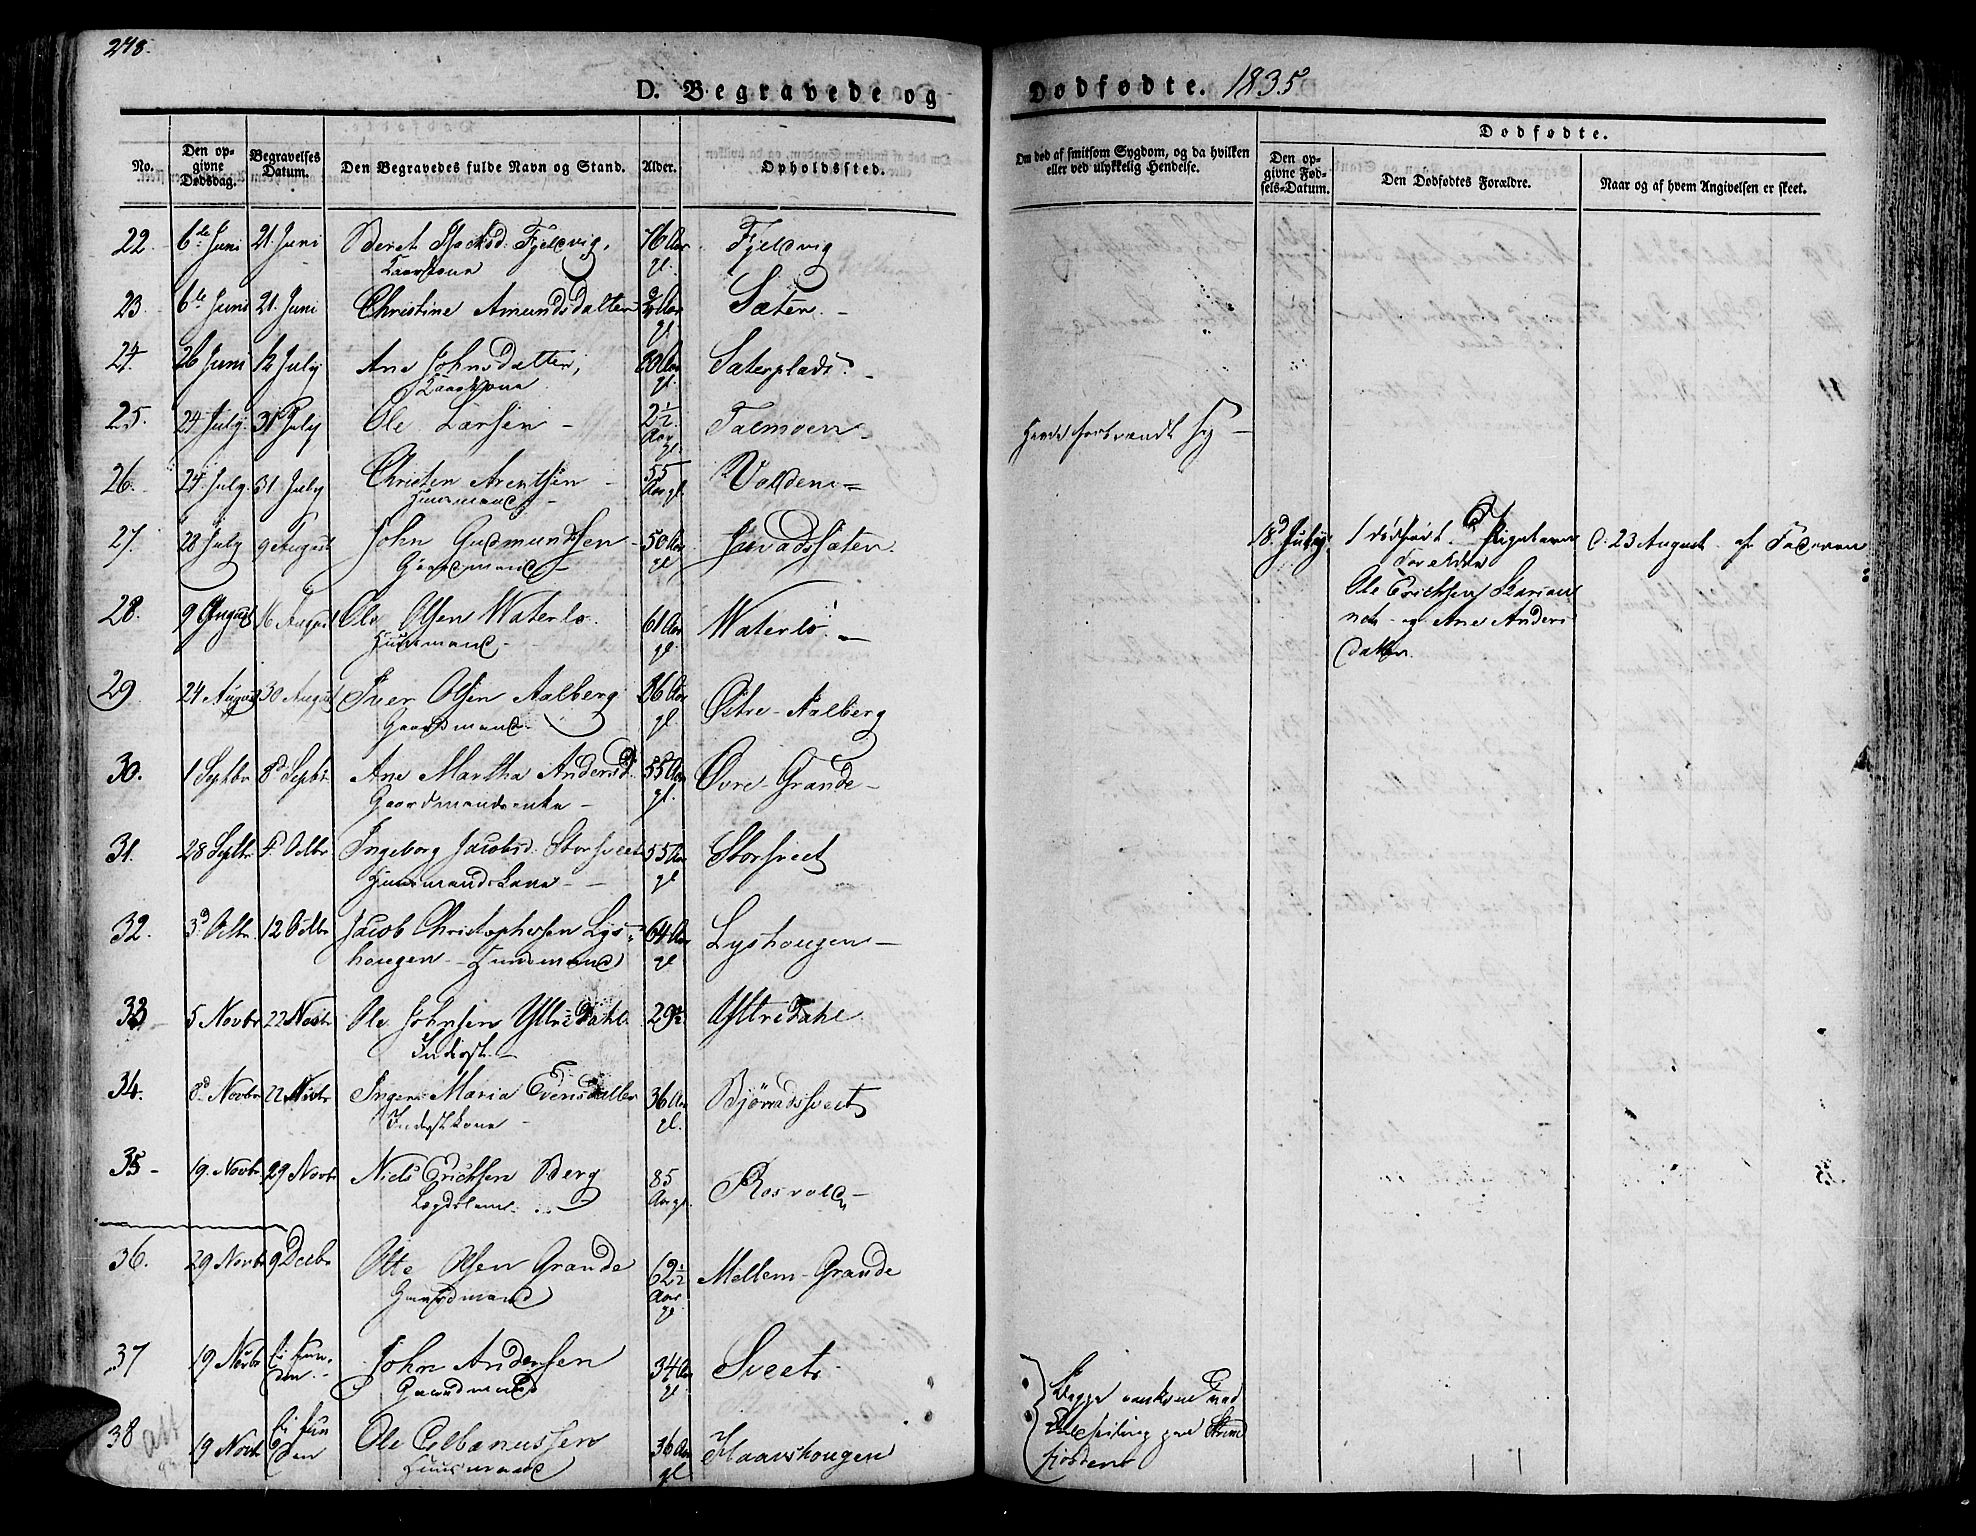 248.
D. Begravede og Dødfødte. 1835
No.
Den opgivne Dødsdag.
Begravelses Datum.
Den Begravedes fulde Navn og Stand.
Alder.
Opholdssted.
Om død af smitsom Sygdom, og da hvilken eller ved ulykkelig Hendelse.
Dødfødte.
Den opgivne Fødsels-Datum.
Den Dødfødtes Forældre.
Naar og af hvem Angivelsen er skeet.
22. 6te Juni 21. Juni Beret Fjeldvig, 76 Aar Fjeldvig
Kaarkone gl.
23. 6te Juni 21. Juni Christine Amundsdatter Aar Sæter. -
gl.
24. 26 Juni 12 July Ane Johnsdatter, 80 Aar Sæterplads. -
Kaarkone gl.
25. 24 July 31 July Ole Larsen - 2½ Aar gl. Falmoen -
forbrændt sig -
26. 24. July 31. July Christen Arentsen - 55 Aar gl. Valdene =
Huusmand -
27. 28 July 9 August John Gudmundsen - 50 Aar
Gaardmand - gl.
18d July. 1 dødfødt
Forældre
Ole Erichsen
og Ane Anders
datter.
d. 23 August af Faderen
28. 9 August 16 August Ole Olsen Waterlo. 61 Aar Waterlo. -
Huusmand - gl.
29 24 August 30 August Iver Olsen Aalberg 86 Aar Østre-Aalberg
Gaardmand - gl.
30. 1 Septbr 8d Septbr Ane Martha Andersd. 55 Aar Øvre-Grande -
Gaardmandsenke - gl.
31. 28 Septbr 4d Octbr Ingeborg Jacobsd. Storsveet 55 Aar Storsveet
Huusmandskone - gl
32. 3d Octbr. 12 Octbr Jacob Christophersen Lys- 64 Aar Lyshougen -
hougen - Huusmand gl
33 5 Novbr 22 Novbr Ole Johnsen Yttredahl 29½ Yttredahl
Inderst. -
34. 8d Novbr 22 Novbr Inger Maria Evensdatter 36 Aar
Inderstkone - gl.
35 - 19. Novbr 29 Novbr Niels Erichsen Berg 85 Rosvold -
Lægdslem. Aar gl.
36. 29 Novbr 9 Decbr Olte Olsen Grande 62½ Mellem-Grande
Gaardmand Aar gl
37 19 Novbr Ei funden. - John Andersen 34 Aar Sveet
Gaardmand gl
38 19 Novbr Ei funden Ole Albanussen 36 Aar Haanshougen
Huusmand gl
Begge
paa
fjorden